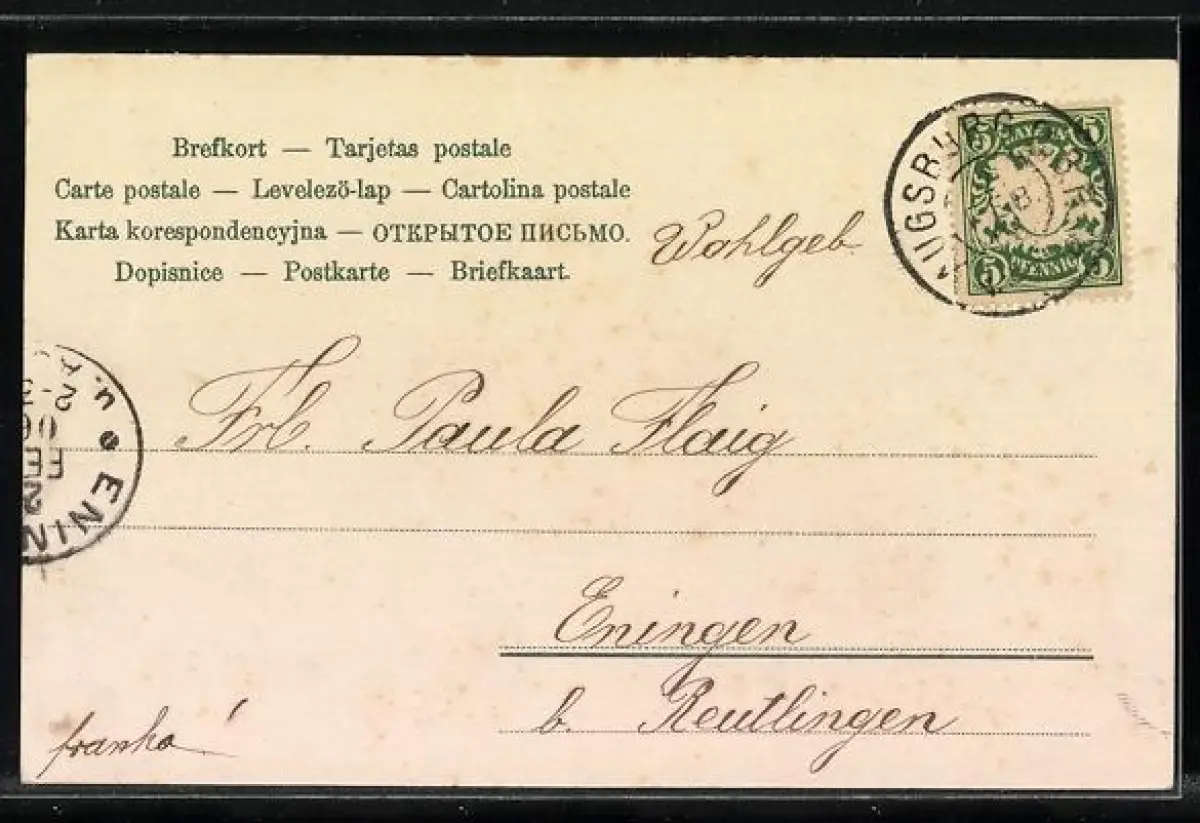 Brefkort — Tarjetas postale
Carte postale — Levelező-lap — Cartolina postale
Karta korespondencyjna — ОТКРЫТОЕ ПИСЬМО.
Dopisnice — Postkarte — Briefkaart.
Wohlgeb.
AUGSBURG
5 BAYERN 5
5 PFENNIG 5
Frl. Paula Flaig
ENIN
u.
Eningen
b. Reutlingen
franko!